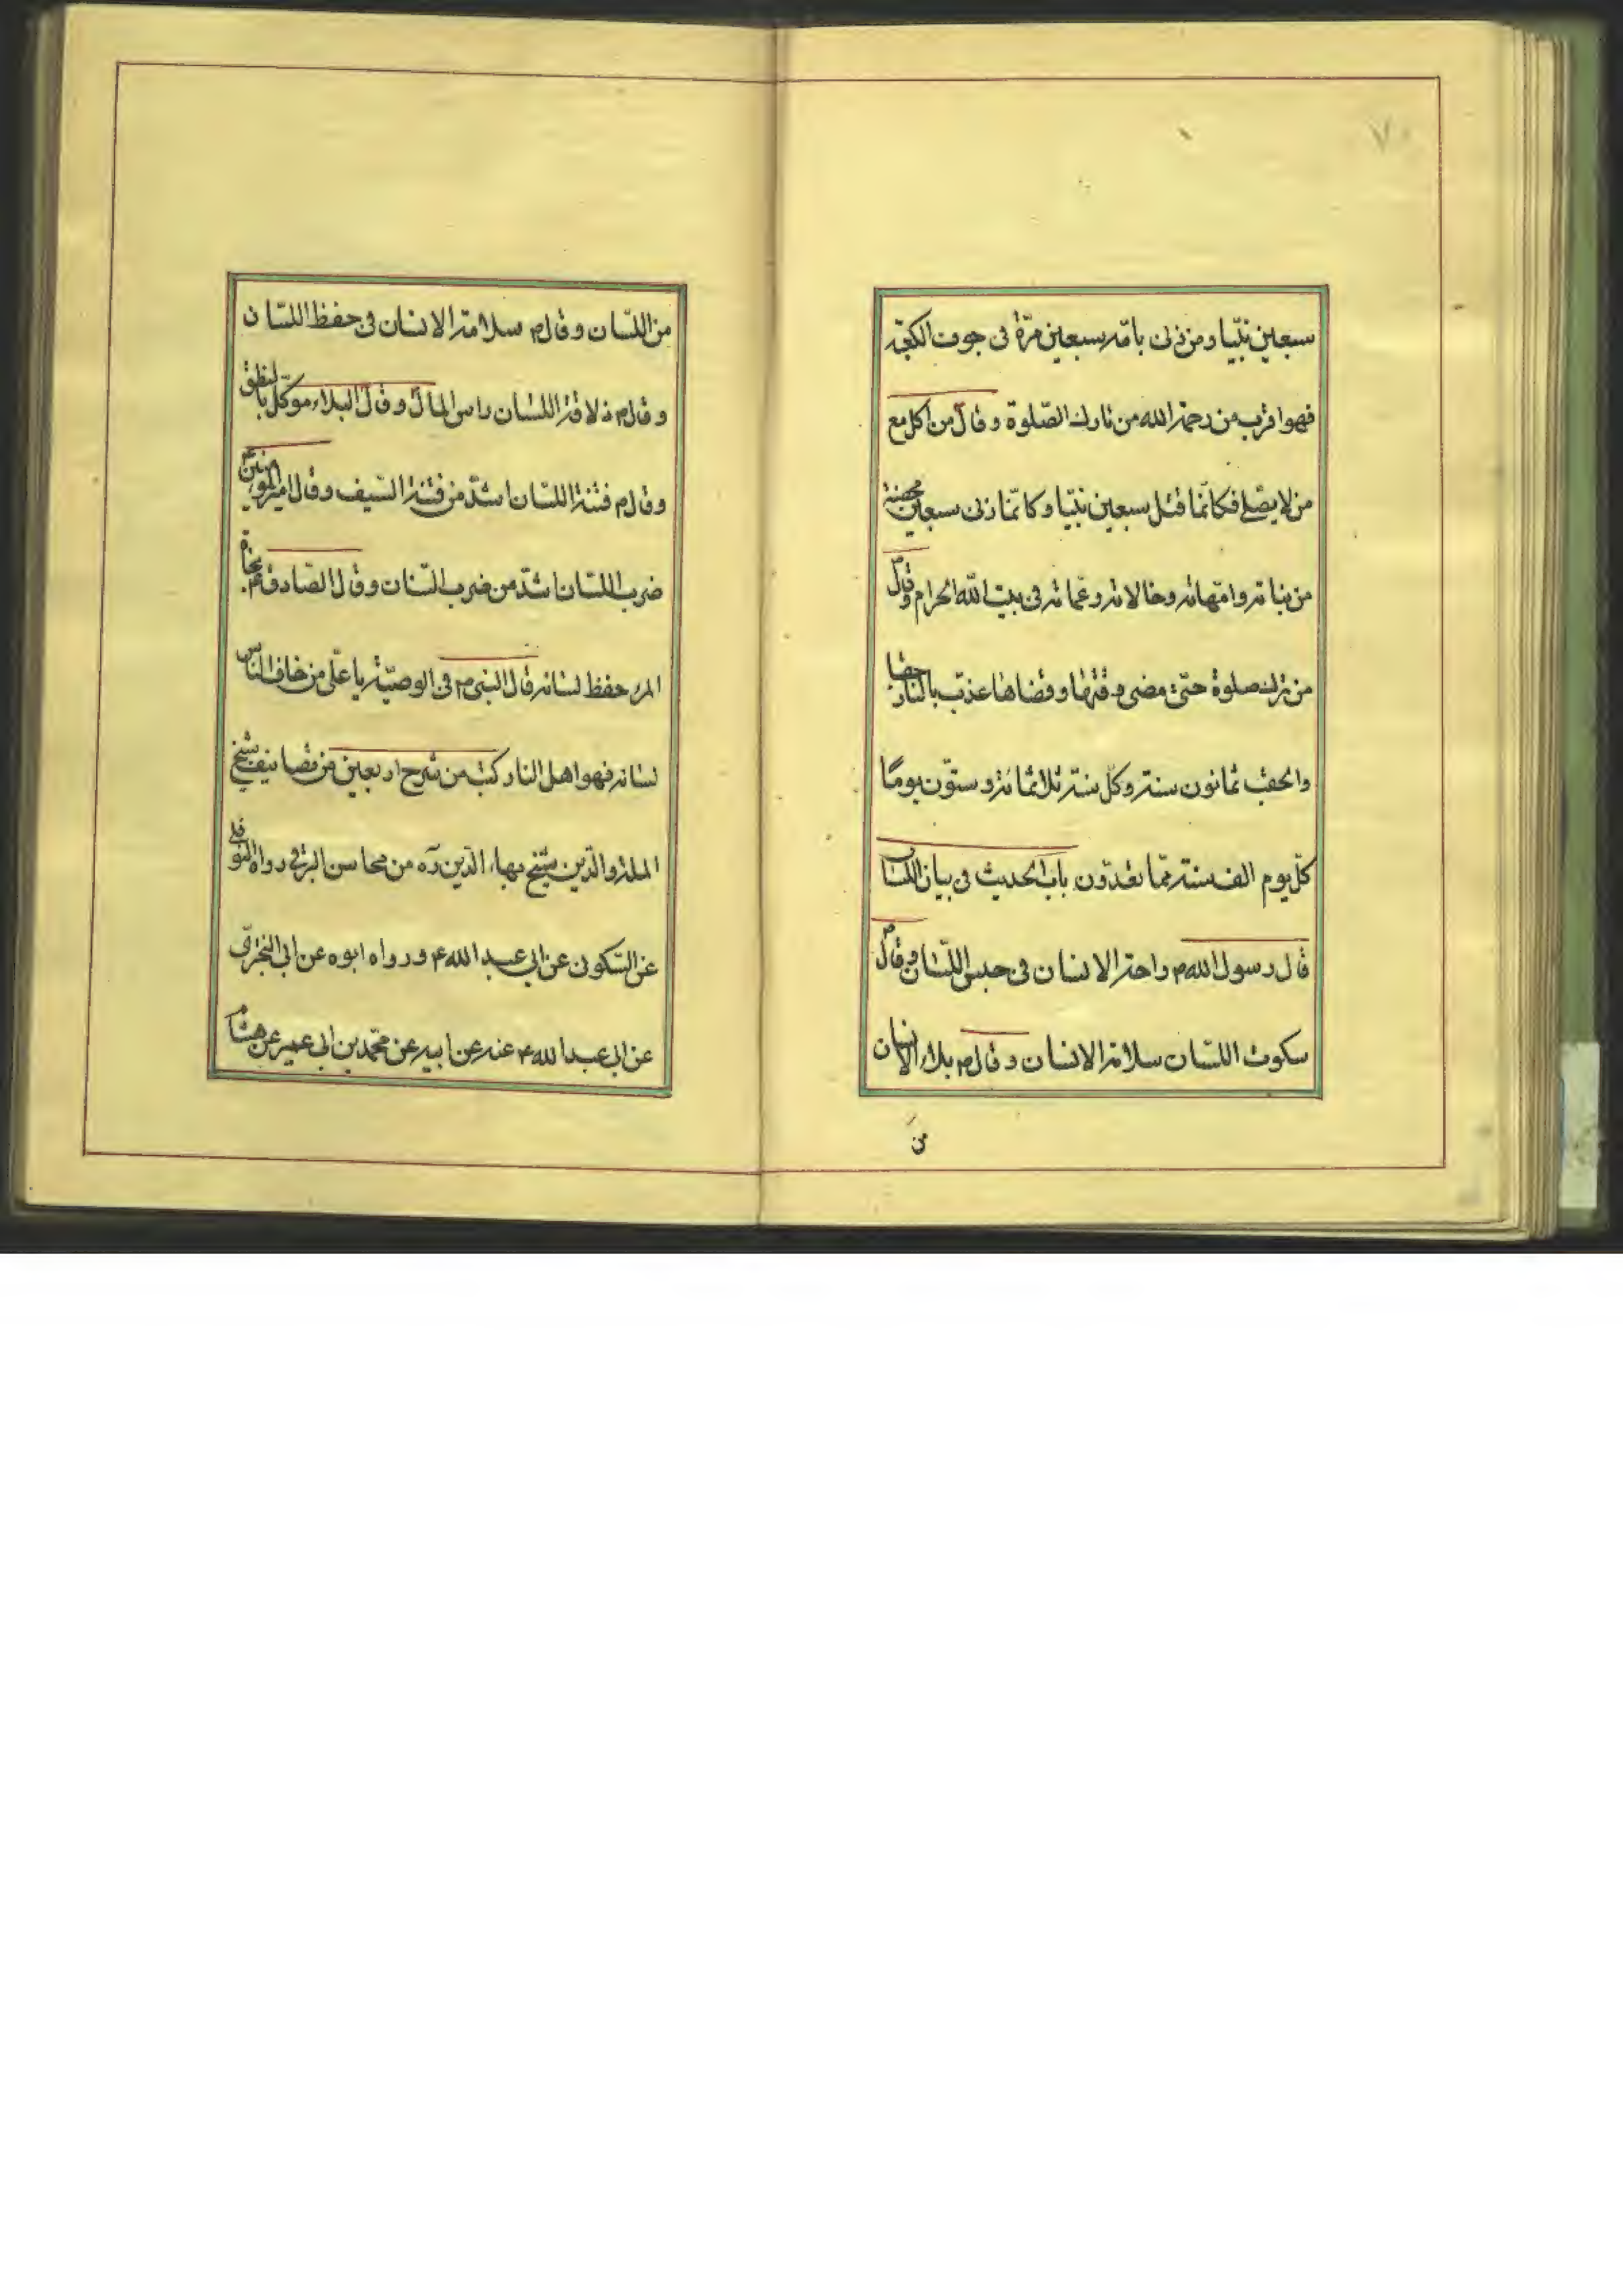 ٧٠
سبعين نبيّا ومن زنى بامّه سبعين مرّة فى جوف الكعبة
فهو اقرب من رحمة الله من تارك الصّلوة وقال من اكل مع
من لا يصلّى فكانّما قتل سبعين نبيّا وكانّما زنى سبعين محصنة
من بناته وامّهاته وخالاته وعمّاته فى بيت الله الحرام وقال ص
من ترك صلوة حتّى مضى وقتها وقضاها عذّب بالنار حقبا
والحقب ثمانون سنة وكلّ سنة ثلاثمائة وستّون يومًا
كلّ يوم الف سنة ممّا تعدّون باب الحديث فى بيان اللسان
قال رسول الله ص راحة الانسان فى حبس اللّسان وقال ص
سكوت اللسّان سلامة الانسان وقال ص بلاء الانسان
من
من اللسّان وقال ص سلامة الانسان فى حفظ اللسّان
وقال ص ذلاقة اللسّان راس المال وقال البلاء موكّل بالنطق
وقال ص فتنة اللسّان اشدّ من فتنة السّيف وقال امير المؤمنين ع
ضرب اللسّان اشدّ من ضرب السّنان وقال الصّادق ع نجاة
المرء حفظ لسانه قال النبى ص فى الوصيّة يا علّى من خاف النّاس
لسانه فهو اهل النار كتب من شرح اربعين من تصانيف شيخ
الملة والدّين شيخ بهاء الدّين ره من محاسن البرقى رواه النوفلى
عن السّكونى عن ابى عبد الله ع ورواه ابوه عن ابى البخترىّ
عن ابى عبد الله ع عنه عن ابيه عن محمّد بن ابى عمير عن هشام